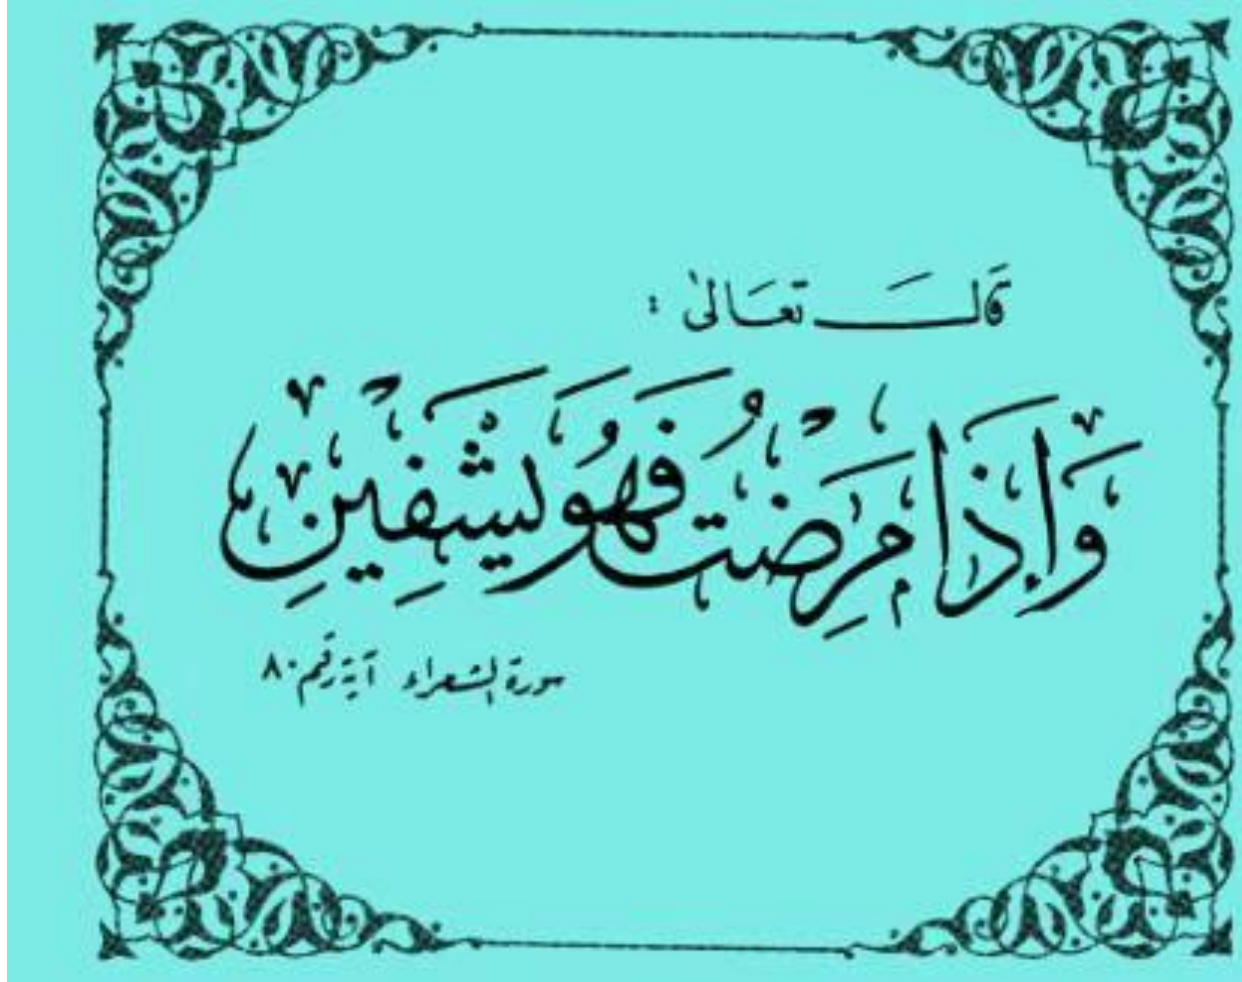 قَالَ تعَالىٰ :
وَإِذَا مَرِضْتُ فَهُوَ يَشْفِينِ
سورة الشعراء آية رقم ٨٠